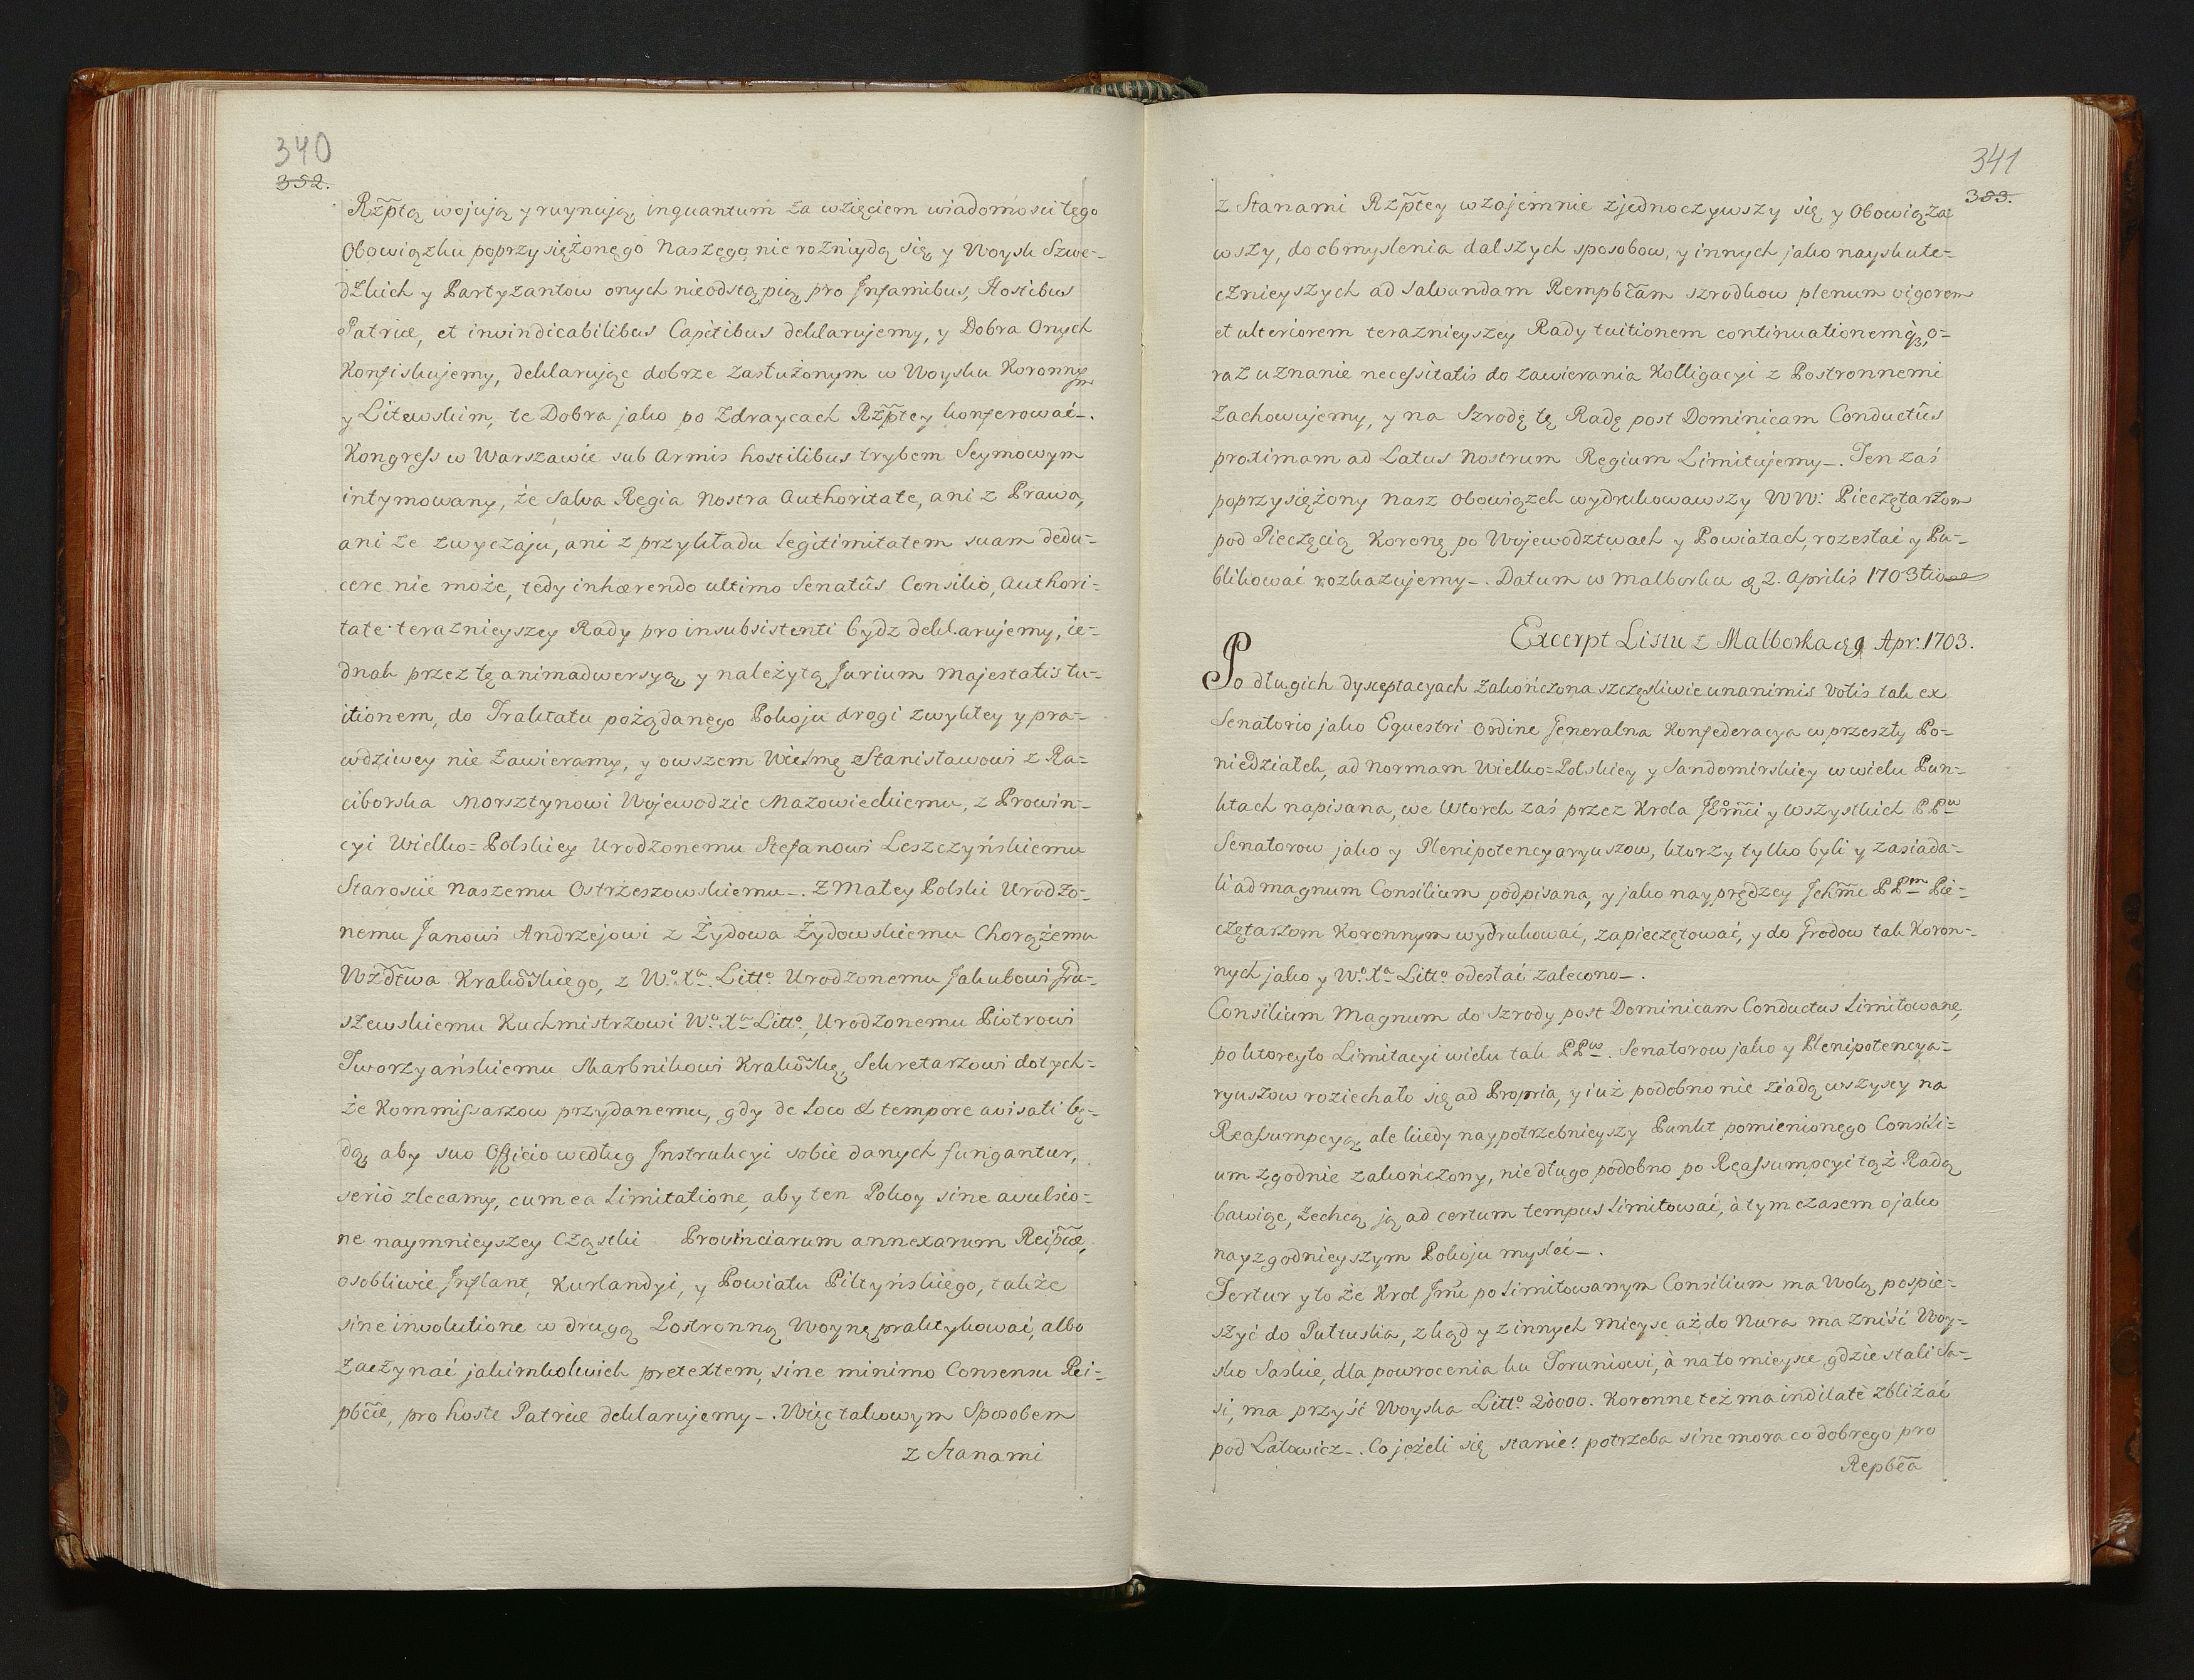 340
352.
Rz̃ptą wojują y ruynują, inquantum za wzięciem wiadomosci tego
Obowiązku poprzysiężonego Naszego nie rozniydą się, y Woysk Szwe-
dzkich y Partyzantow onych nieodstąpią pro Infamibus, Hostibus
Patriæ, et invindicabilibus Capitibus deklarujemy, y Dobra Onych
Konfiskujemy, deklarując dobrze zasłużonym w Woysku Koronnym
y Litewskim, te Dobra jako po Zdraycach Rz̃ptey konferować-.
Kongress w Warszawie sub Armis hostilibus trybem Seymowym
intymowany, że Salva Regia Nostra Authoritate, ani z Prawa,
ani ze zwyczaju, ani z przykładu legitimitatem suam dedu-
cere nie może, tedy inhærendo ultimo Senatûs Consilio, Authori-
tate teraznieyszey Rady pro insubsistenti bydz deklarujemy, ie-
dnak przez tę animadwersyą y należytą Jurium Majestatis tu-
itionem, do Traktatu pożądanego Pokoju drogi zwykłey y pra-
wdziwey nie zawieramy, y owszem Wielmę Stanisławowi z Ra-
ciborska Morsztynowi Wojewodzie Mazowieckiemu, z Prowin-
cyi Wielko-Polskiey Urodzonemu Stefanowi Leszczyńskiemu
Staroscie Naszemu Ostrzeszowskiemu-. Z Małey Polski Urodzo-
nemu Janowi Andrzejowi z Żydowa Żydowskiemu Chorążemu
Wz̃dtwa Krakõskiego, z Wº Xª Littº Urodzonemu Jakubowi Gra-
szewskiemu Kuchmistrzowi Wº Xª Littº, Urodzonemu Piotrowi
Tworzyańskiemu Skarbnikowi Krakõskę, Sekretarzowi do tych-
że Kommissarzow przydanemu, gdy de loco et tempore avisati bę-
dą, aby suo Officio według Instrukcyi sobie danych fungantur,
seriò zlecamy, cum ea limitatione, aby ten Pokoy sine avulsio-
ne naymnieyszey Cząstki Provinciarum annexarum Reip̃æ,
osobliwie Inflant, Kurlandyi, y Powiatu Piltyńskiego, także
sine involutione w drugą Postronną Woynę praktykować, albo
zaczynać jakimkolwiek pretextem, sine minimo Consensu Rei-
pb̃cæ, pro hoste Patriæ deklarujemy-. Więc takowym Sposobem
z Stanami
341
353.
z Stanami Rz̃ptey wzajemnie zjednoczywszy się y Obowiąza
wszy, do obmyslenia dalszych sposobow, y innych jako nayskute-
cznieyszych ad salvandam Rempb̃cam szrodkow plenum vigorem
et ulteriorem teraznieyszey Rady tuitionem continuationemq̃, o-
raz uznanie necessitatis do zawierania Kolligacyi z Postronnemi
zachowujemy, y na Szrodę tę Radę post Dominicam Conductûs
proximam ad Latus Nostrum Regium Limitujemy-. Ten zaś
poprzysiężony Nasz Obowiązek wydrukowawszy WW: Pieczętarzom
pod Pieczęcią Koroną po Wojewodztwach y Powiatach, rozesłać y Pu-
blikować rozkazujemy-. Datum w Malborku d. 2. Aprilis 1703tio
Excerpt Listu z Malborka d. 9 Apr: 1703.
Po długich dysceptacyach zakończona szczęsliwie unanimis votis tak ex
Senatorio jako Equestri Ordine Generalna Konfederacya w przeszły Po-
niedziałek, ad normam Wielko-Polskiey y Sandomirskiey w wielu Pun-
ktach napisana, we Wtorek zaś przez Krola JEº̃mci y wszystkich PPw
Senatorow jako y Plenipotencyaryuszow, ktorzy tylko byli y zasiada-
li ad magnum Consilium podpisana, y jako nayprędzey Ichm̃c PPm Pie-
czętarzom Koronnym wydrukować, zapieczętować, y do Grodow tak Koron-
nych jako y Wº Xª Littº odesłać zalecono-.
Consilium Magnum do Szrody post Dominicam Conductus limitowane,
po ktoreyto Limitacyi wielu tak PPw. Senatorow jako y Plenipotencya-
ryuszow roziechało się ad Propria, y iuż podobno nie ziadą wszyscy na
Reassumpcyą, ale kiedy naypotrzebnieyszy Punkt pomienionego Consili-
um zgodnie zakończony, niedługo podobno po Reassumpcyi tąż Radą
bawiąc, zechcą ją ad certum tempus limitować, à tym czasem o jako
nayzgodnieyszym Pokoju myslić-.
Fertur y to że Krol Jm̃ci po limitowanym Consilium ma Wolą pospie-
szyć do Pułtuska, zkąd y z innych mieysc aż do Nura ma zniść Woy-
sko Saskie, dla powrocenia ku Toruniowi, à na to mieysce gdzie stali Sa-
si, ma przyść Woyska Littº 20000. Koronne też ma indilatè zbliżać
pod Latowicz-. Co jeżeli się stanie! potrzeba sine mora co dobrego pro
Repb̃ca